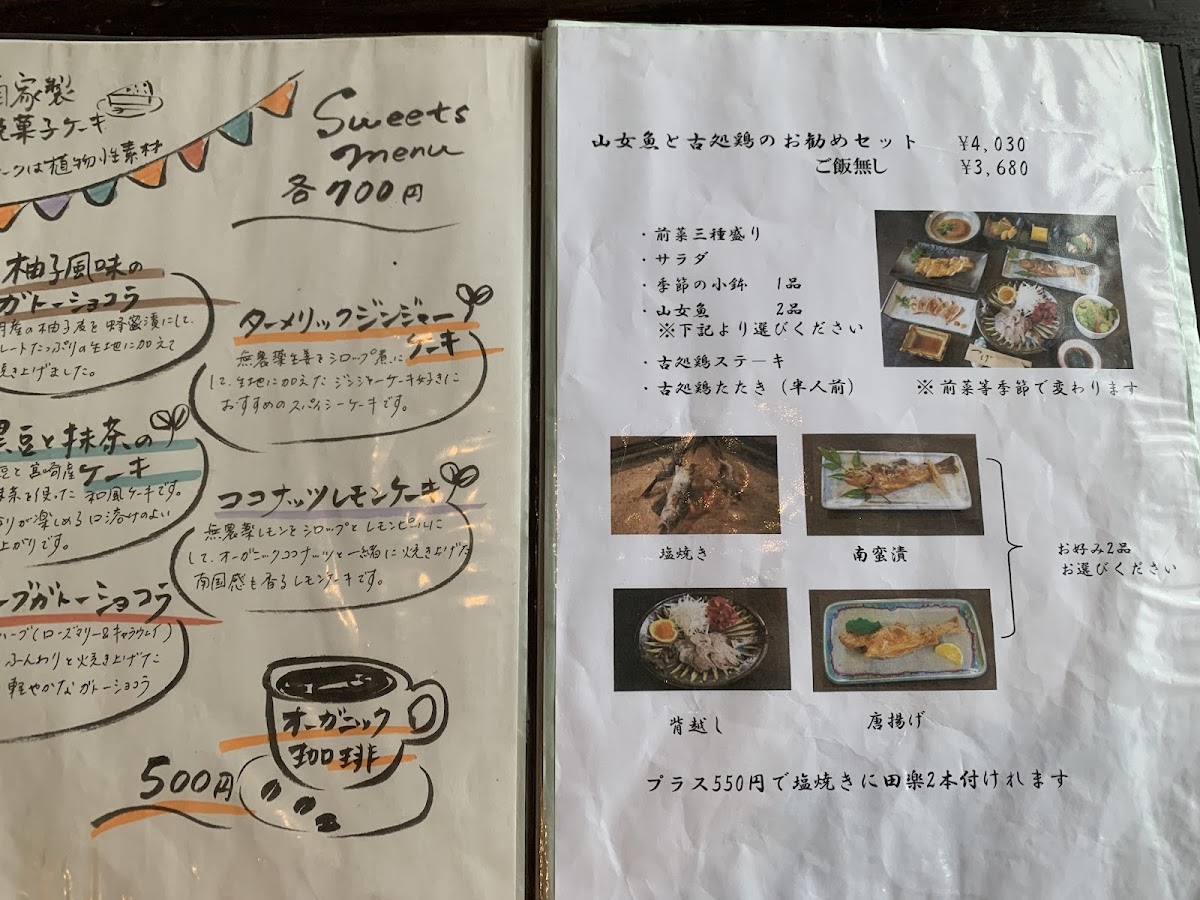 自家製
焼菓子ケーキ
ークは植物性素材
Sweets
menu
各700円
柚子風味の
ガトーショコラ
産の柚子皮を蜂蜜漬にして、
レートたっぷりの生地に加えて
焼き上げました。
ターメリックジンジャー
ケーキ
無農薬生姜をシロップ煮に
して、生地に加えた ジンジャーケーキ好きに
おすすめのスパイシーケーキです。
黒豆と抹茶の
ケーキ
豆と韮崎産
抹茶を使った 和風ケーキです。
りが楽しめる口溶けのよい
上がりです。
ココナッツレモンケーキ
無農薬レモンをシロップとレモンピールに
して、オーガニックココナッツと一緒に焼き上げた
南国感も香るレモンケーキです。
ーブガトーショコラ
ハーブ(ローズマリー&キャラウェイ)
ふんわりと焼き上げた
軽やかなガトーショコラ
オーガニック
珈琲
500円
山女魚と古処鶏のお勧めセット ¥4,030
ご飯無し ¥3,680
・前菜三種盛り
・サラダ
・季節の小鉢 1品
・山女魚 2品
※下記より選びください
・古処鶏ステーキ
・古処鶏たたき(半人前)
※前菜等季節で変わります
塩焼き
南蛮漬
お好み2品
お選びください
背越し
唐揚げ
プラス550円で塩焼きに田楽2本付けれます